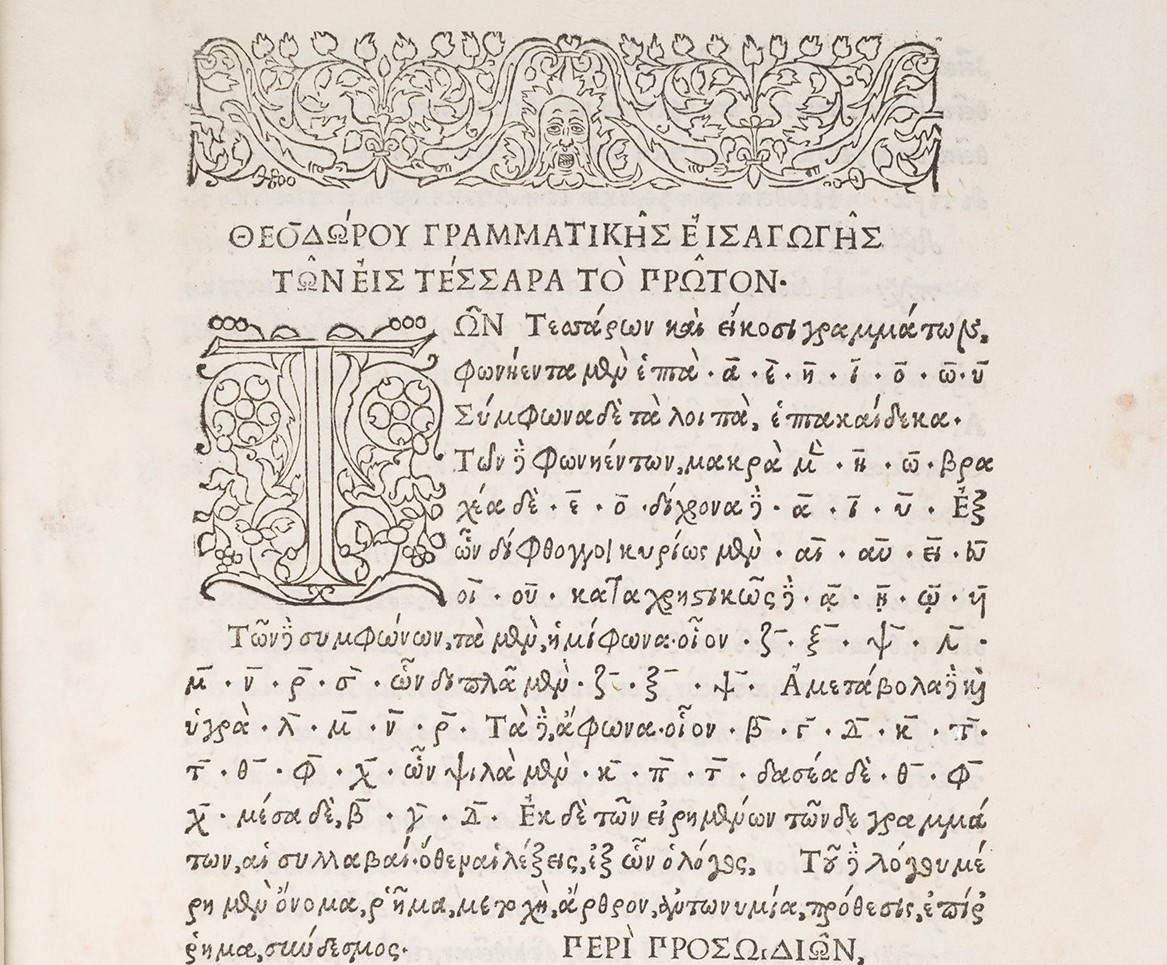 ΘΕΟΔΏΡΟΥ ΓΡΑΜΜΑΤΙΚΗ͂Σ ἘΙΣΑΓΩΓΗ͂Σ
ΤΩ͂Ν ἘΙΣ ΤΈΣΣΑΡΑ ΤῸ ΠΡΩ͂ΤΟΝ·
ΤΩ͂Ν Τεσσάρων καὶ εἴκοσι γραμμάτων,
φωνήεντα μὲν ἑπτὰ · α̅ · ε̅ · η̅ · ι̅ · ο̅ · ω̅ · υ̅
Σύμφωνα δὲ τὰ λοιπὰ, ἑπτακαίδεκα·
Τῶν δὲ φωνηέντων, μακρὰ μὲν · η̅ · ω̅ · βρα
χέα δὲ · ε̅ · ο̅ · δίχρονα δὲ · α̅ · ι̅ · υ̅ · Ἐξ
ὧν δίφθογγοι κυρίως μὲν · αι̅ · αυ̅ · ει̅ · ευ̅
οι̅ · ου̅ · καταχρηστικῶς δὲ · ᾳ̅ · ῃ̅ · ῳ̅ · ηυ̅
Τῶν δὲ συμφώνων, τὰ μὲν, ἡμίφωνα· οἷον · ζ̅ · ξ̅ · ψ̅ · λ̅ ·
μ̅ · ν̅ · ρ̅ · σ̅ · ὧν διπλᾶ μὲν · ζ̅ · ξ̅ · ψ̅ · Ἀμετάβολα δὲ καὶ
ὑγρὰ · λ̅ · μ̅ · ν̅ · ρ̅ · Τὰ δὲ, ἄφωνα· οἷον · β̅ · γ̅ · δ̅ · κ̅ · π̅ ·
τ̅ · θ̅ · φ̅ · χ̅ · ὧν ψιλὰ μὲν · κ̅ · π̅ · τ̅ · δασέα δὲ · θ̅ · φ̅
χ̅ · μέσα δὲ, β̅ · γ̅ · δ̅ · Ἐκ δὲ τῶν εἰρημένων τῶνδε γραμμά
των, αἱ συλλαβαί· ὅθεν αἱ λέξεις, ἐξ ὧν ὁ λόγος, Τοῦ δὲ λόγου μέ
ρη μὲν ὄνομα, ῥῆμα, μετοχὴ, ἄρθρον, ἀντωνυμία, πρόθεσις, ἐπίρ
ῥημα, σύνδεσμος· ΠΕΡῚ ΠΡΟΣΩιΔΙΩ͂Ν,